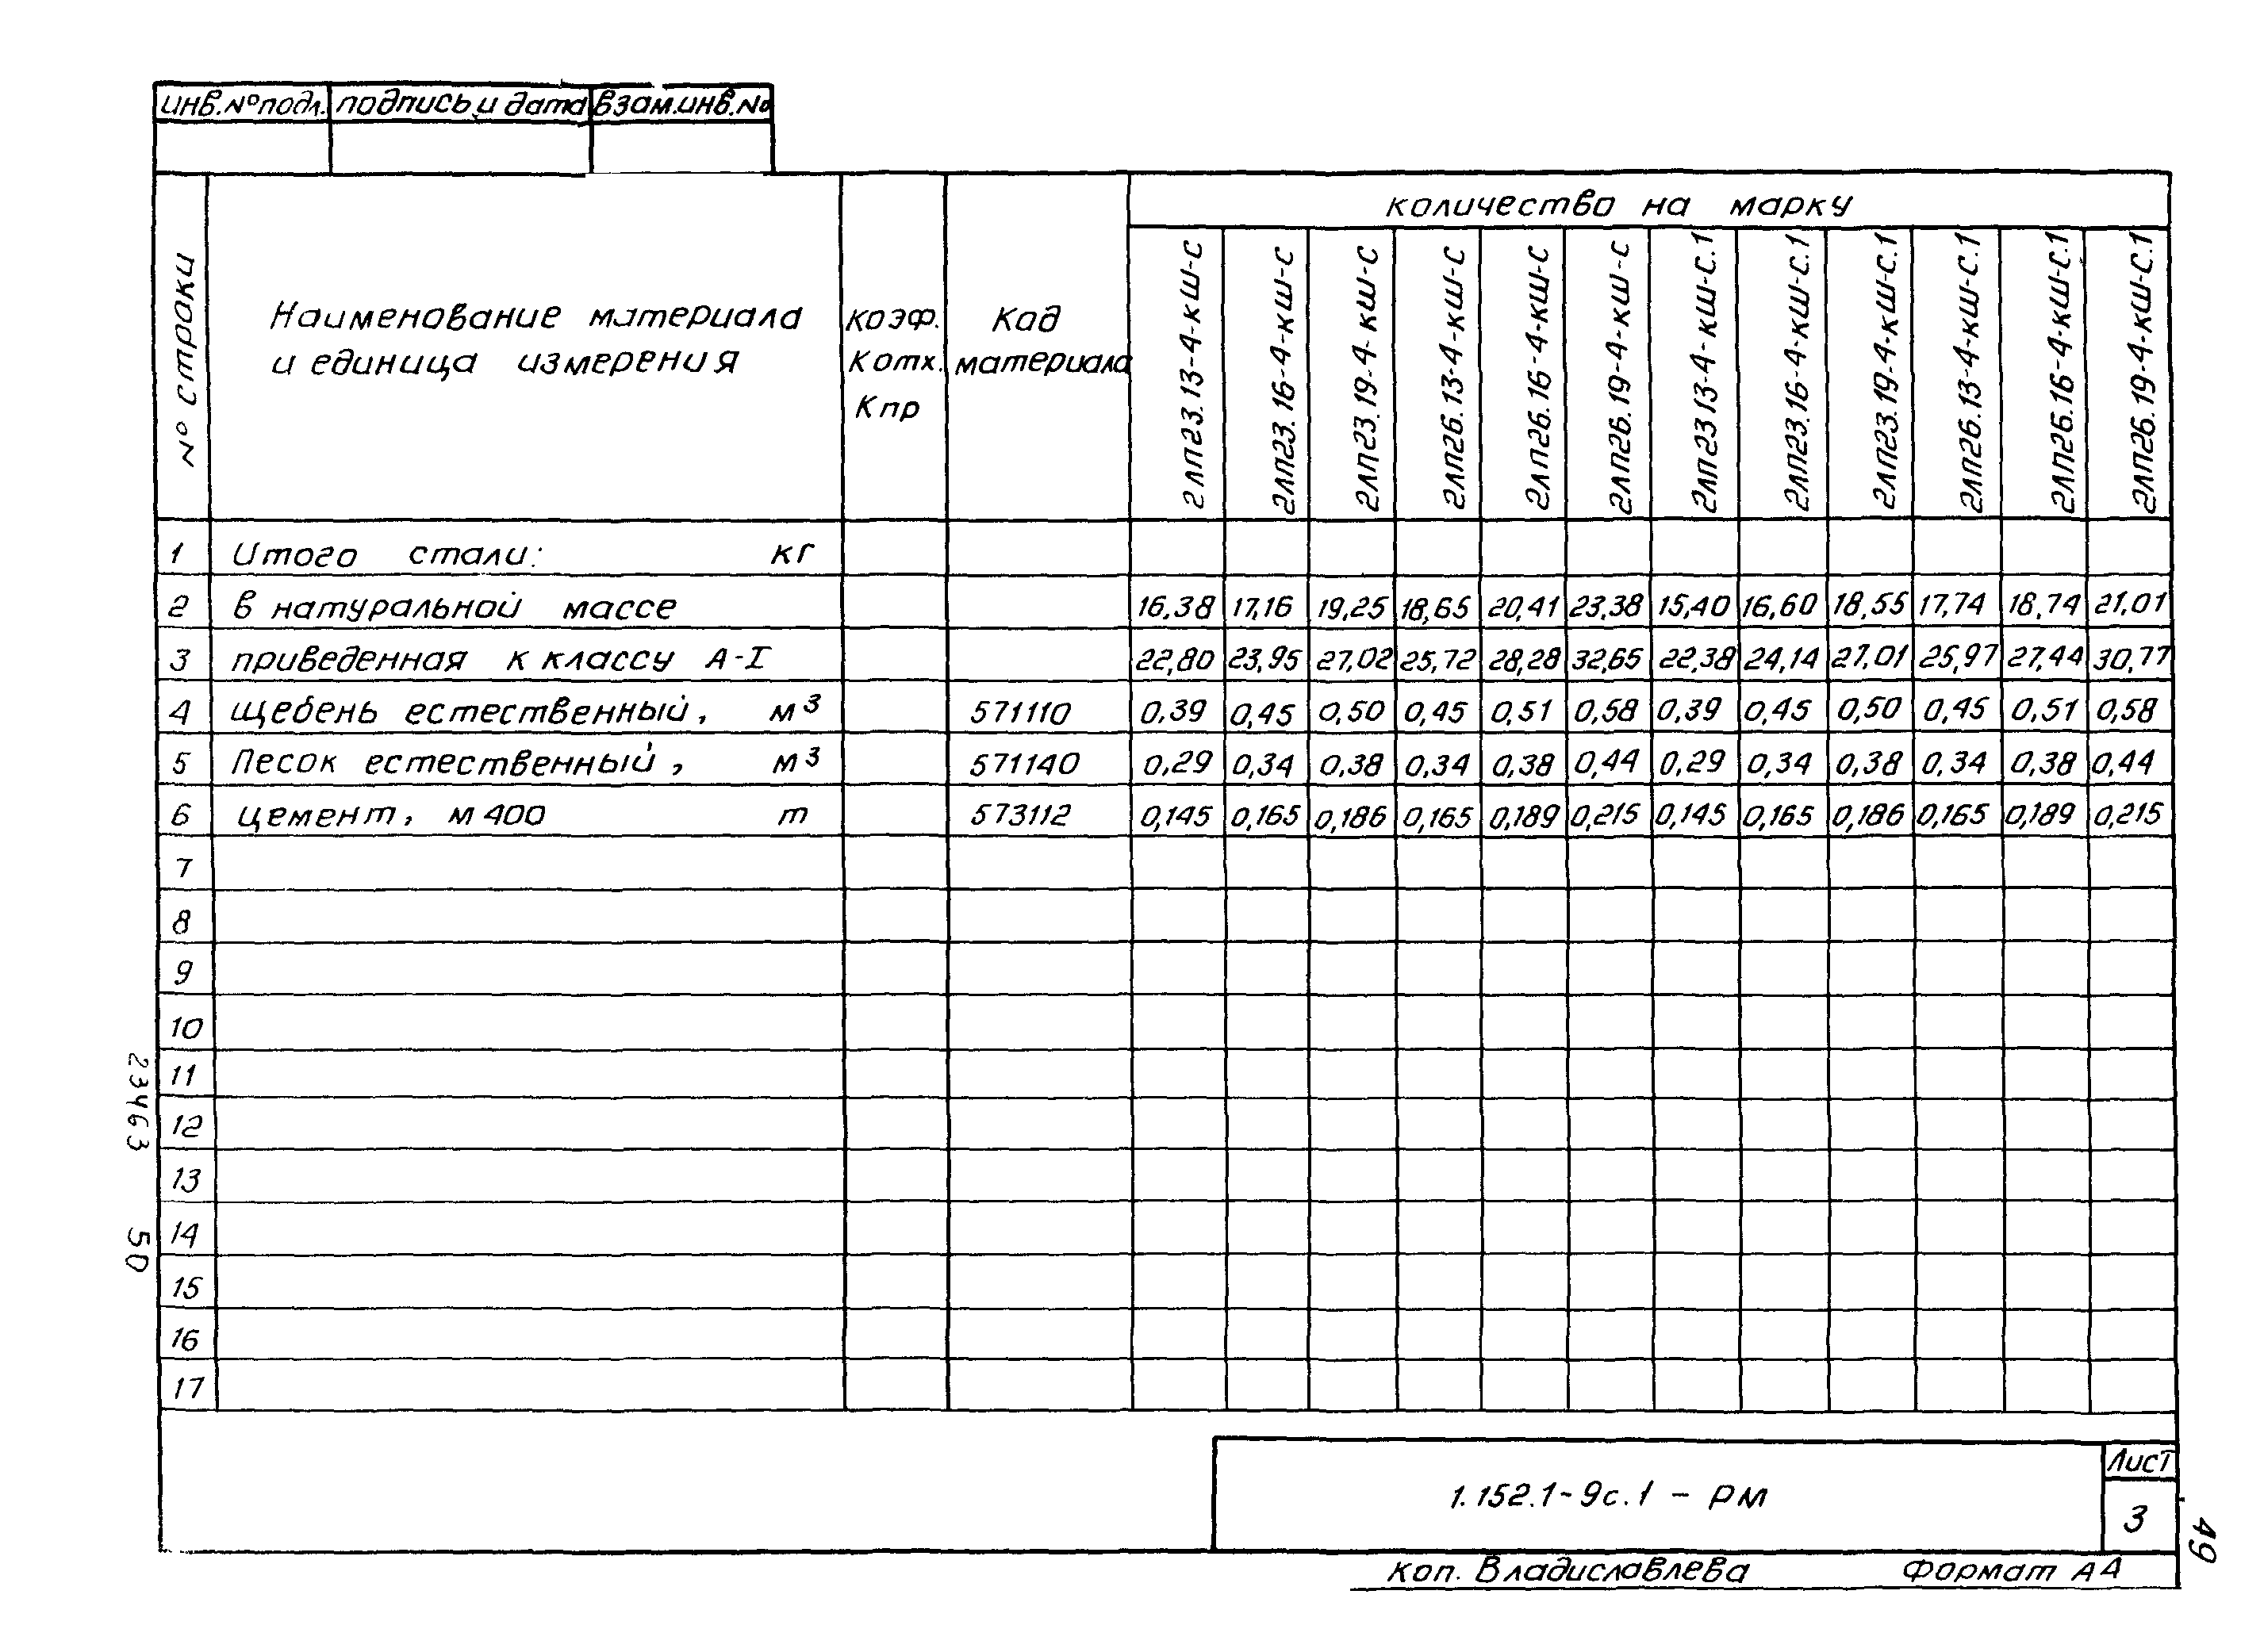 инв.№ подл. подпись и дата взам.инв.№
№ строки
Наименование материала
и единица измерения
коэф.
Котх.
Кпр
Код
материала
количество на марку
2лп23.13-4-кш-с
2лп23.16-4-кш-с
2лп23.19-4-кш-с
2лп26.13-4-кш-с
2лп26.16-4-кш-с
2лп26.19-4-кш-с
2лп23 13-4-кш-с.1
2лп23.16-4-кш-с.1
2лп23.19-4-кш-с.1
2лп26.13-4-кш-с.1
2лп26.16-4-кш-с.1
2лп26.19-4-кш-с.1
1 Итого стали: кг
2 в натуральной массе 16,38 17,16 19,25 18,65 20,41 23,38 15,40 16,60 18,55 17,74 18,74 21,01
3 приведенная к классу А-I 22,80 23,95 27,02 25,72 28,28 32,65 22,38 24,14 27,01 25,97 27,44 30,77
4 щебень естественный, м³ 571110 0,39 0,45 0,50 0,45 0,51 0,58 0,39 0,45 0,50 0,45 0,51 0,58
5 Песок естественный, м³ 571140 0,29 0,34 0,38 0,34 0,38 0,44 0,29 0,34 0,38 0,34 0,38 0,44
6 цемент, м 400 т 573112 0,145 0,165 0,186 0,165 0,189 0,215 0,145 0,165 0,186 0,165 0,189 0,215
7
8
9
10
11
12
13
14
15
16
17
23463 50
1.152.1-9с.1 - РМ
Лист
3
49
коп. Владиславлева Формат А4